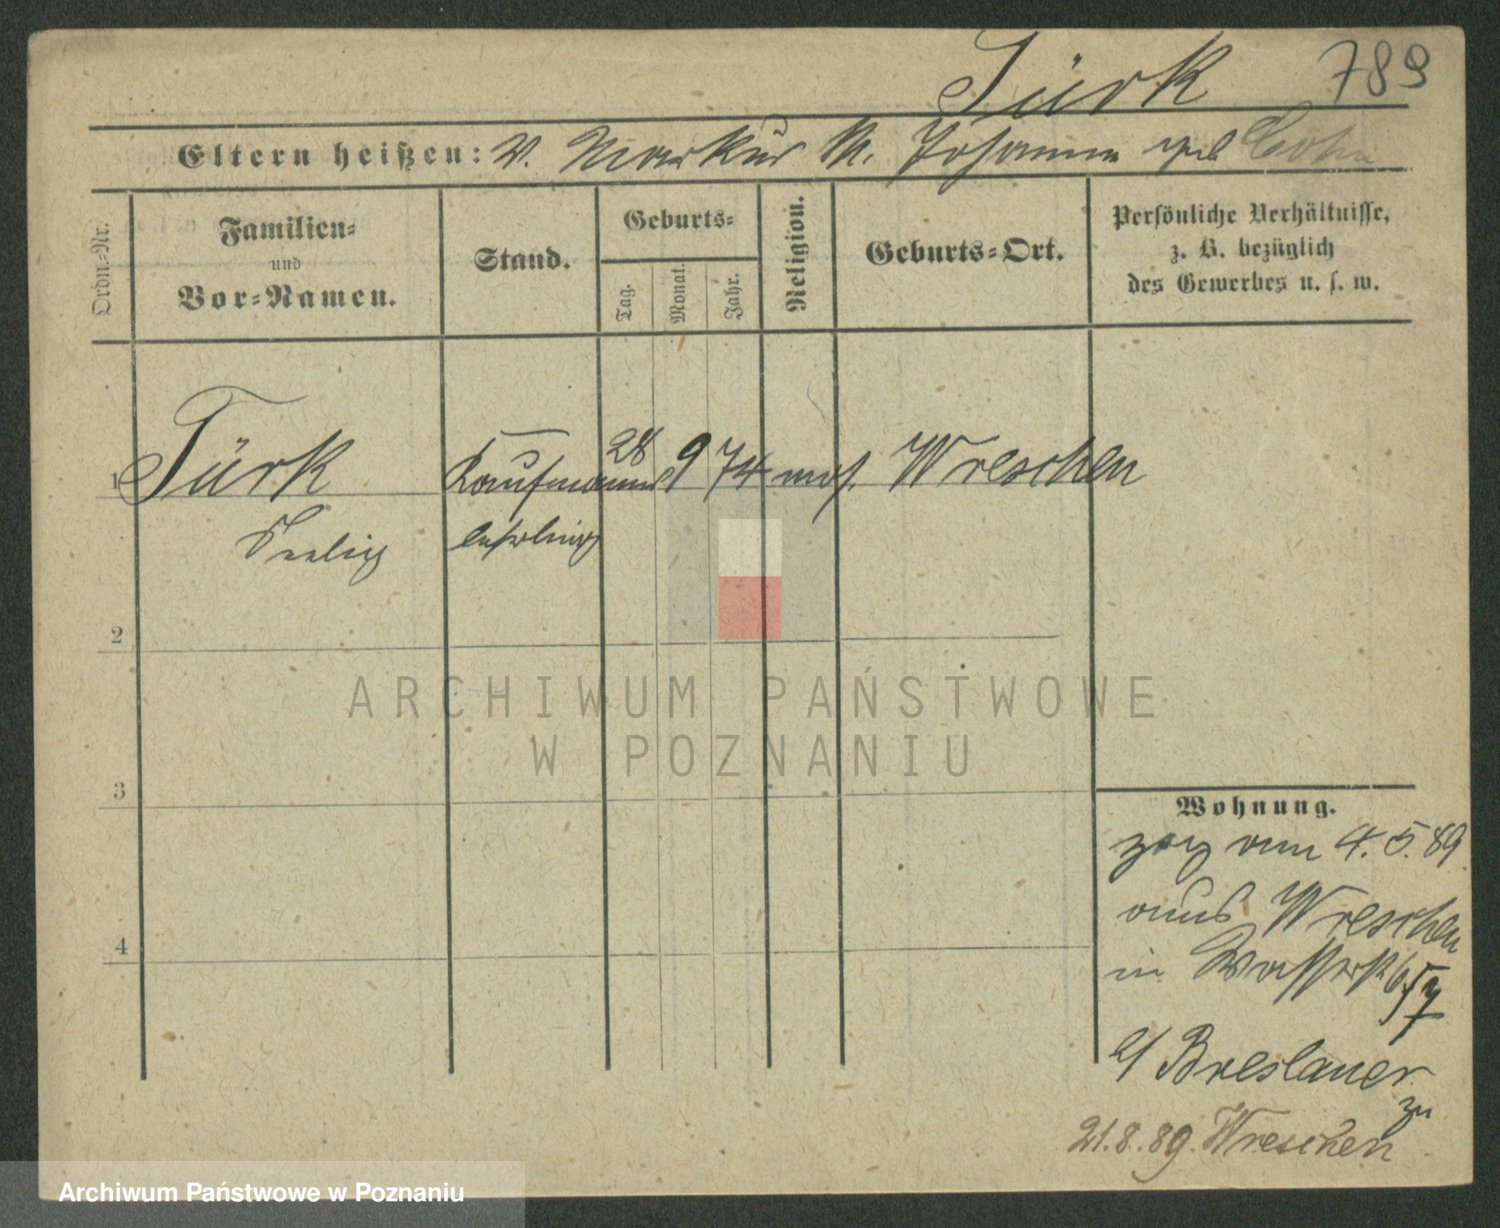 Türk 789
Eltern heißen: V. Markus M. Johanna geb Cohn
Ordn.-Nr.
Familien-
und
Vor-Namen.
Stand.
Geburts-
Tag.
Monat.
Jahr.
Religion.
Geburts-Ort.
Persönliche Verhältnisse,
z. B. bezüglich
des Gewerbes u. s. w.
1 Türk Kaufmanns 28 9 74 mos. Wreschen
Seelig lehrling
2
3
4
Wohnung.
zog am 4. 5. 89
aus Wreschen
in Wasserst
b/ Breslauer
zu
21. 8. 89. Wreschen
ARCHIWUM PAŃSTWOWE
W POZNANIU
Archiwum Państwowe w Poznaniu